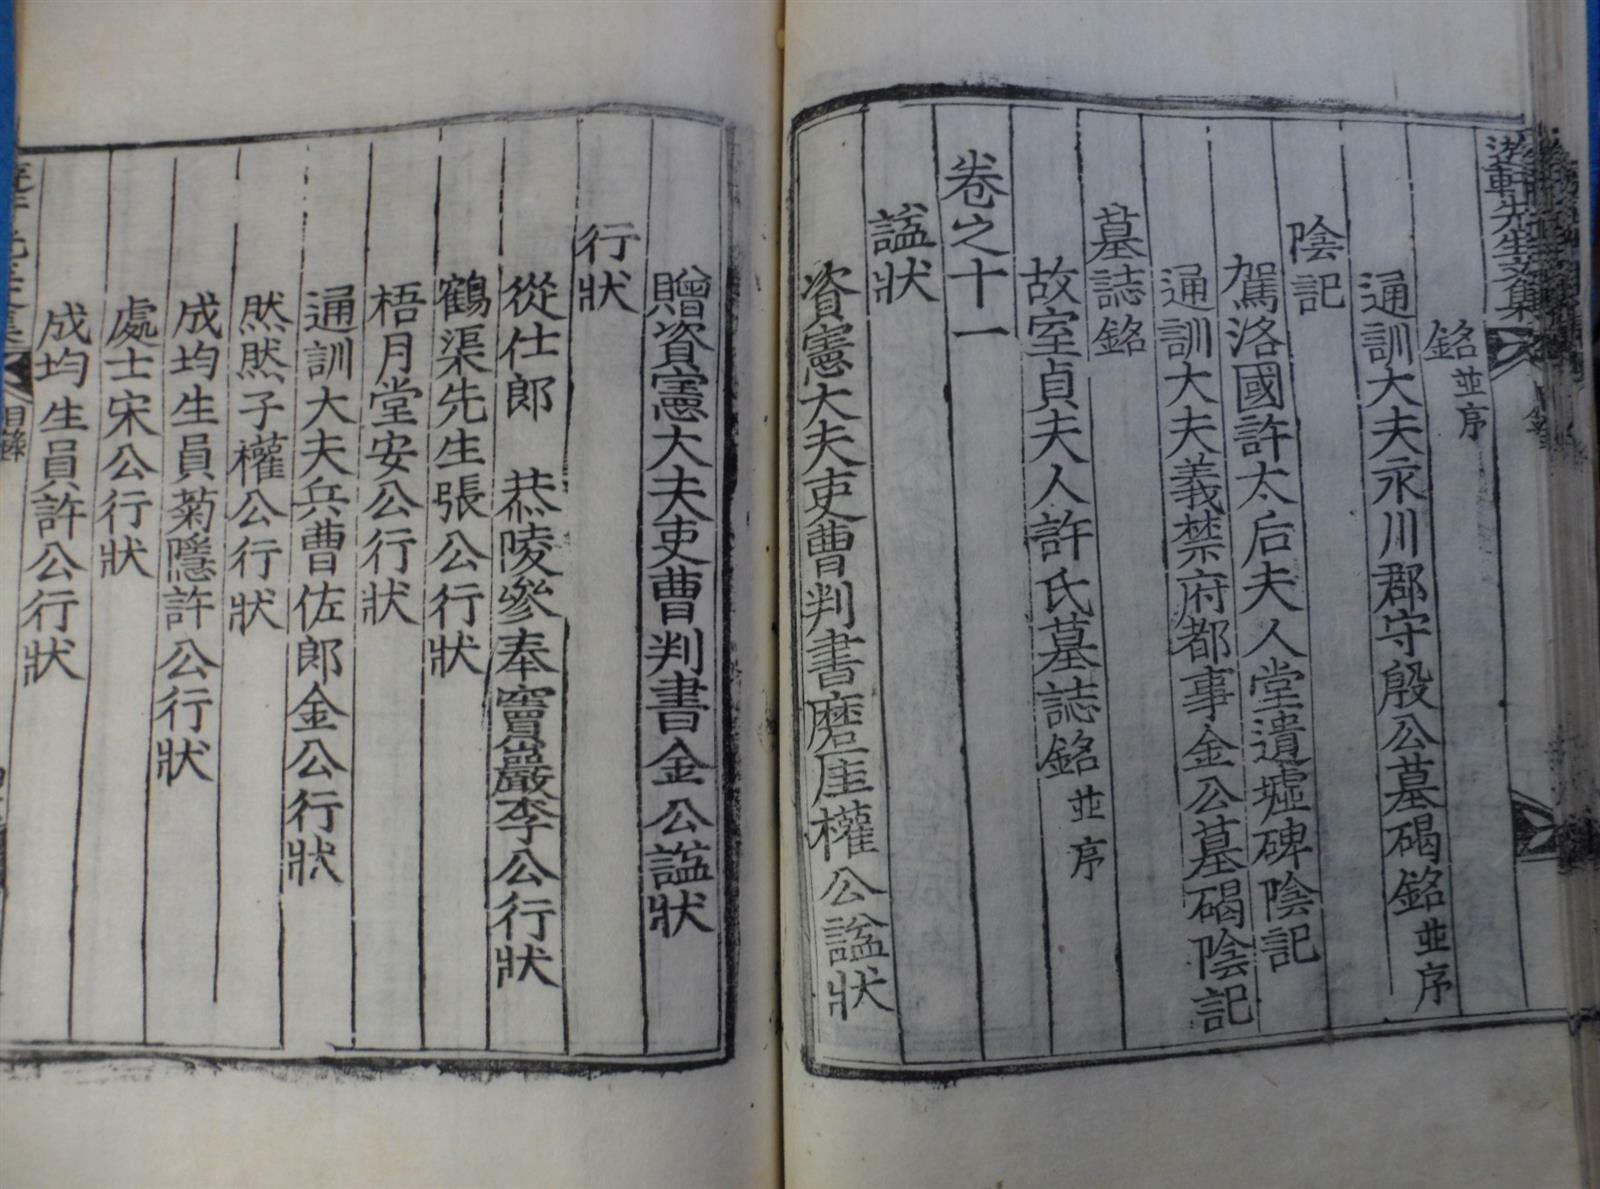 先生文集
銘並序
通訓大夫永川郡守殷公墓碣銘並序
陰記
駕洛國許太后夫人堂遺墟碑陰記
通訓大夫義禁府都事金公墓碣陰記
墓誌銘
故室貞夫人許氏墓誌銘並序
卷之十一
諡狀
資憲大夫吏曹判書磨厓權公諡狀
贈資憲大夫吏曹判書金公諡狀
行狀
從仕郎 恭陵參奉巖李公行狀
鶴渠先生張公行狀
梧月堂安公行狀
通訓大夫兵曹佐郎金公行狀
然然子權公行狀
成均生員菊隱許公行狀
處士宋公行狀
成均生員許公行狀
目錄